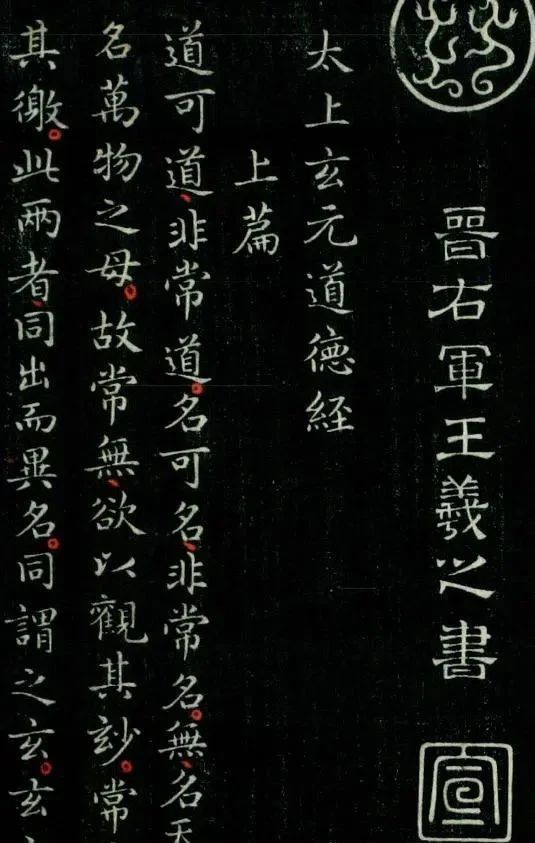 晉右軍王羲之書
宣
太上玄元道德經
上篇
道可道、非常道。名可名、非常名。無、名天
名萬物之母。故常無、欲以觀其玅。常
其徼。此兩者、同出而異名。同謂之玄。玄